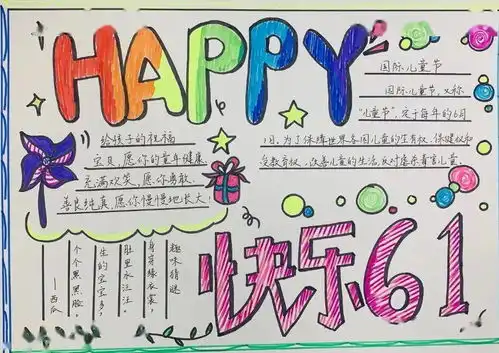 HAPPY
国际儿童节
国际儿童节,又称
"儿童节",定于每年的6月
1日。为了保障世界各国儿童的生存权、保健权和
受教育权、改善儿童的生活,反对虐杀毒害儿童。
给孩子的祝福
宝贝,愿你的童年健康
充满欢笑,愿你勇敢、
善良纯真,愿你慢慢地长大!
趣味猜谜
身穿绿衣裳,
肚里水汪汪,
生的宝宝多,
个个黑黑脸。
——西瓜
快乐61